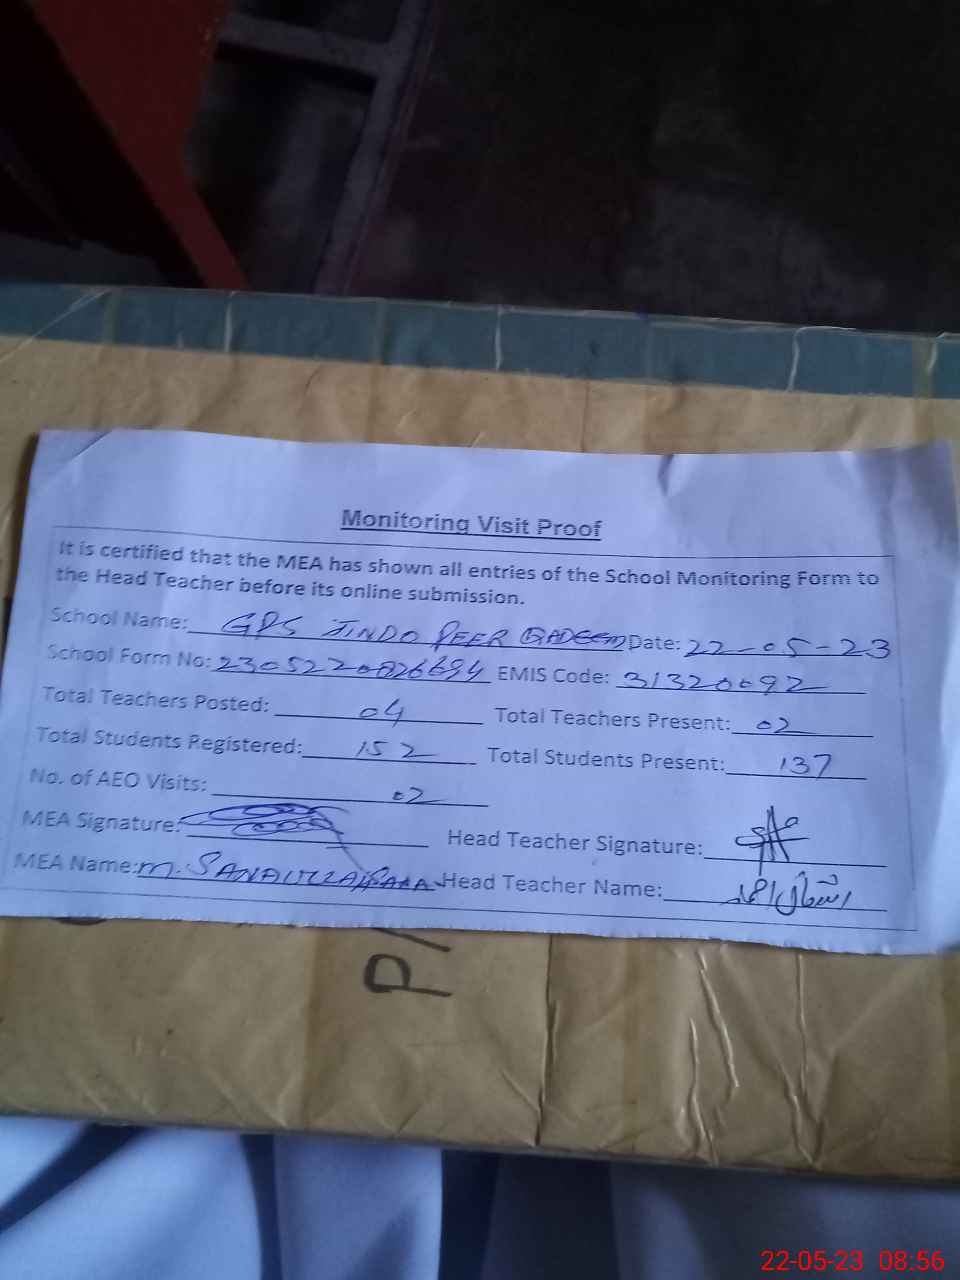 Monitoring Visit Proof
It is certified that the MEA has shown all entries of the School Monitoring Form to
the Head Teacher before its online submission.
School Name: GPS JINDO PEER QADEEM Date: 22-05-23
School Form No: EMIS Code: 31320092
Total Teachers Posted: 04 Total Teachers Present: 02
Total Students Registered: 152 Total Students Present: 137
No. of AEO Visits: 02
MEA Signature: Head Teacher Signature:
MEA Name: M. Head Teacher Name:
P
22-05-23 08:56